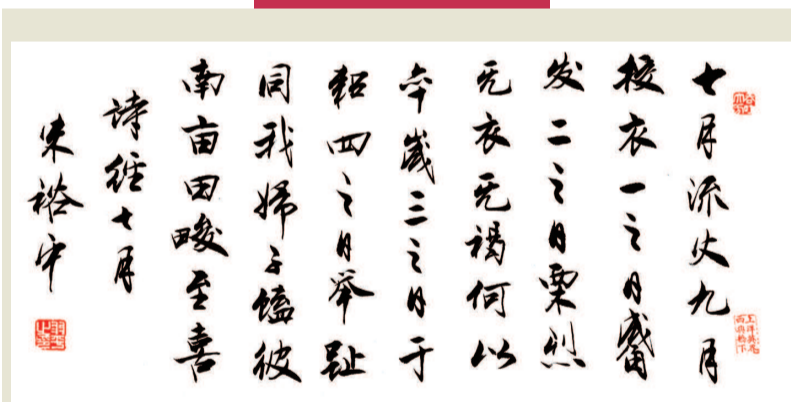 七月流火九月
授衣一之日觱
发二之日栗烈
无衣无褐何以
卒歲三之日于
耜四之日举趾
同我婦子饁彼
南亩田畯至喜
詩經七月
朱裕